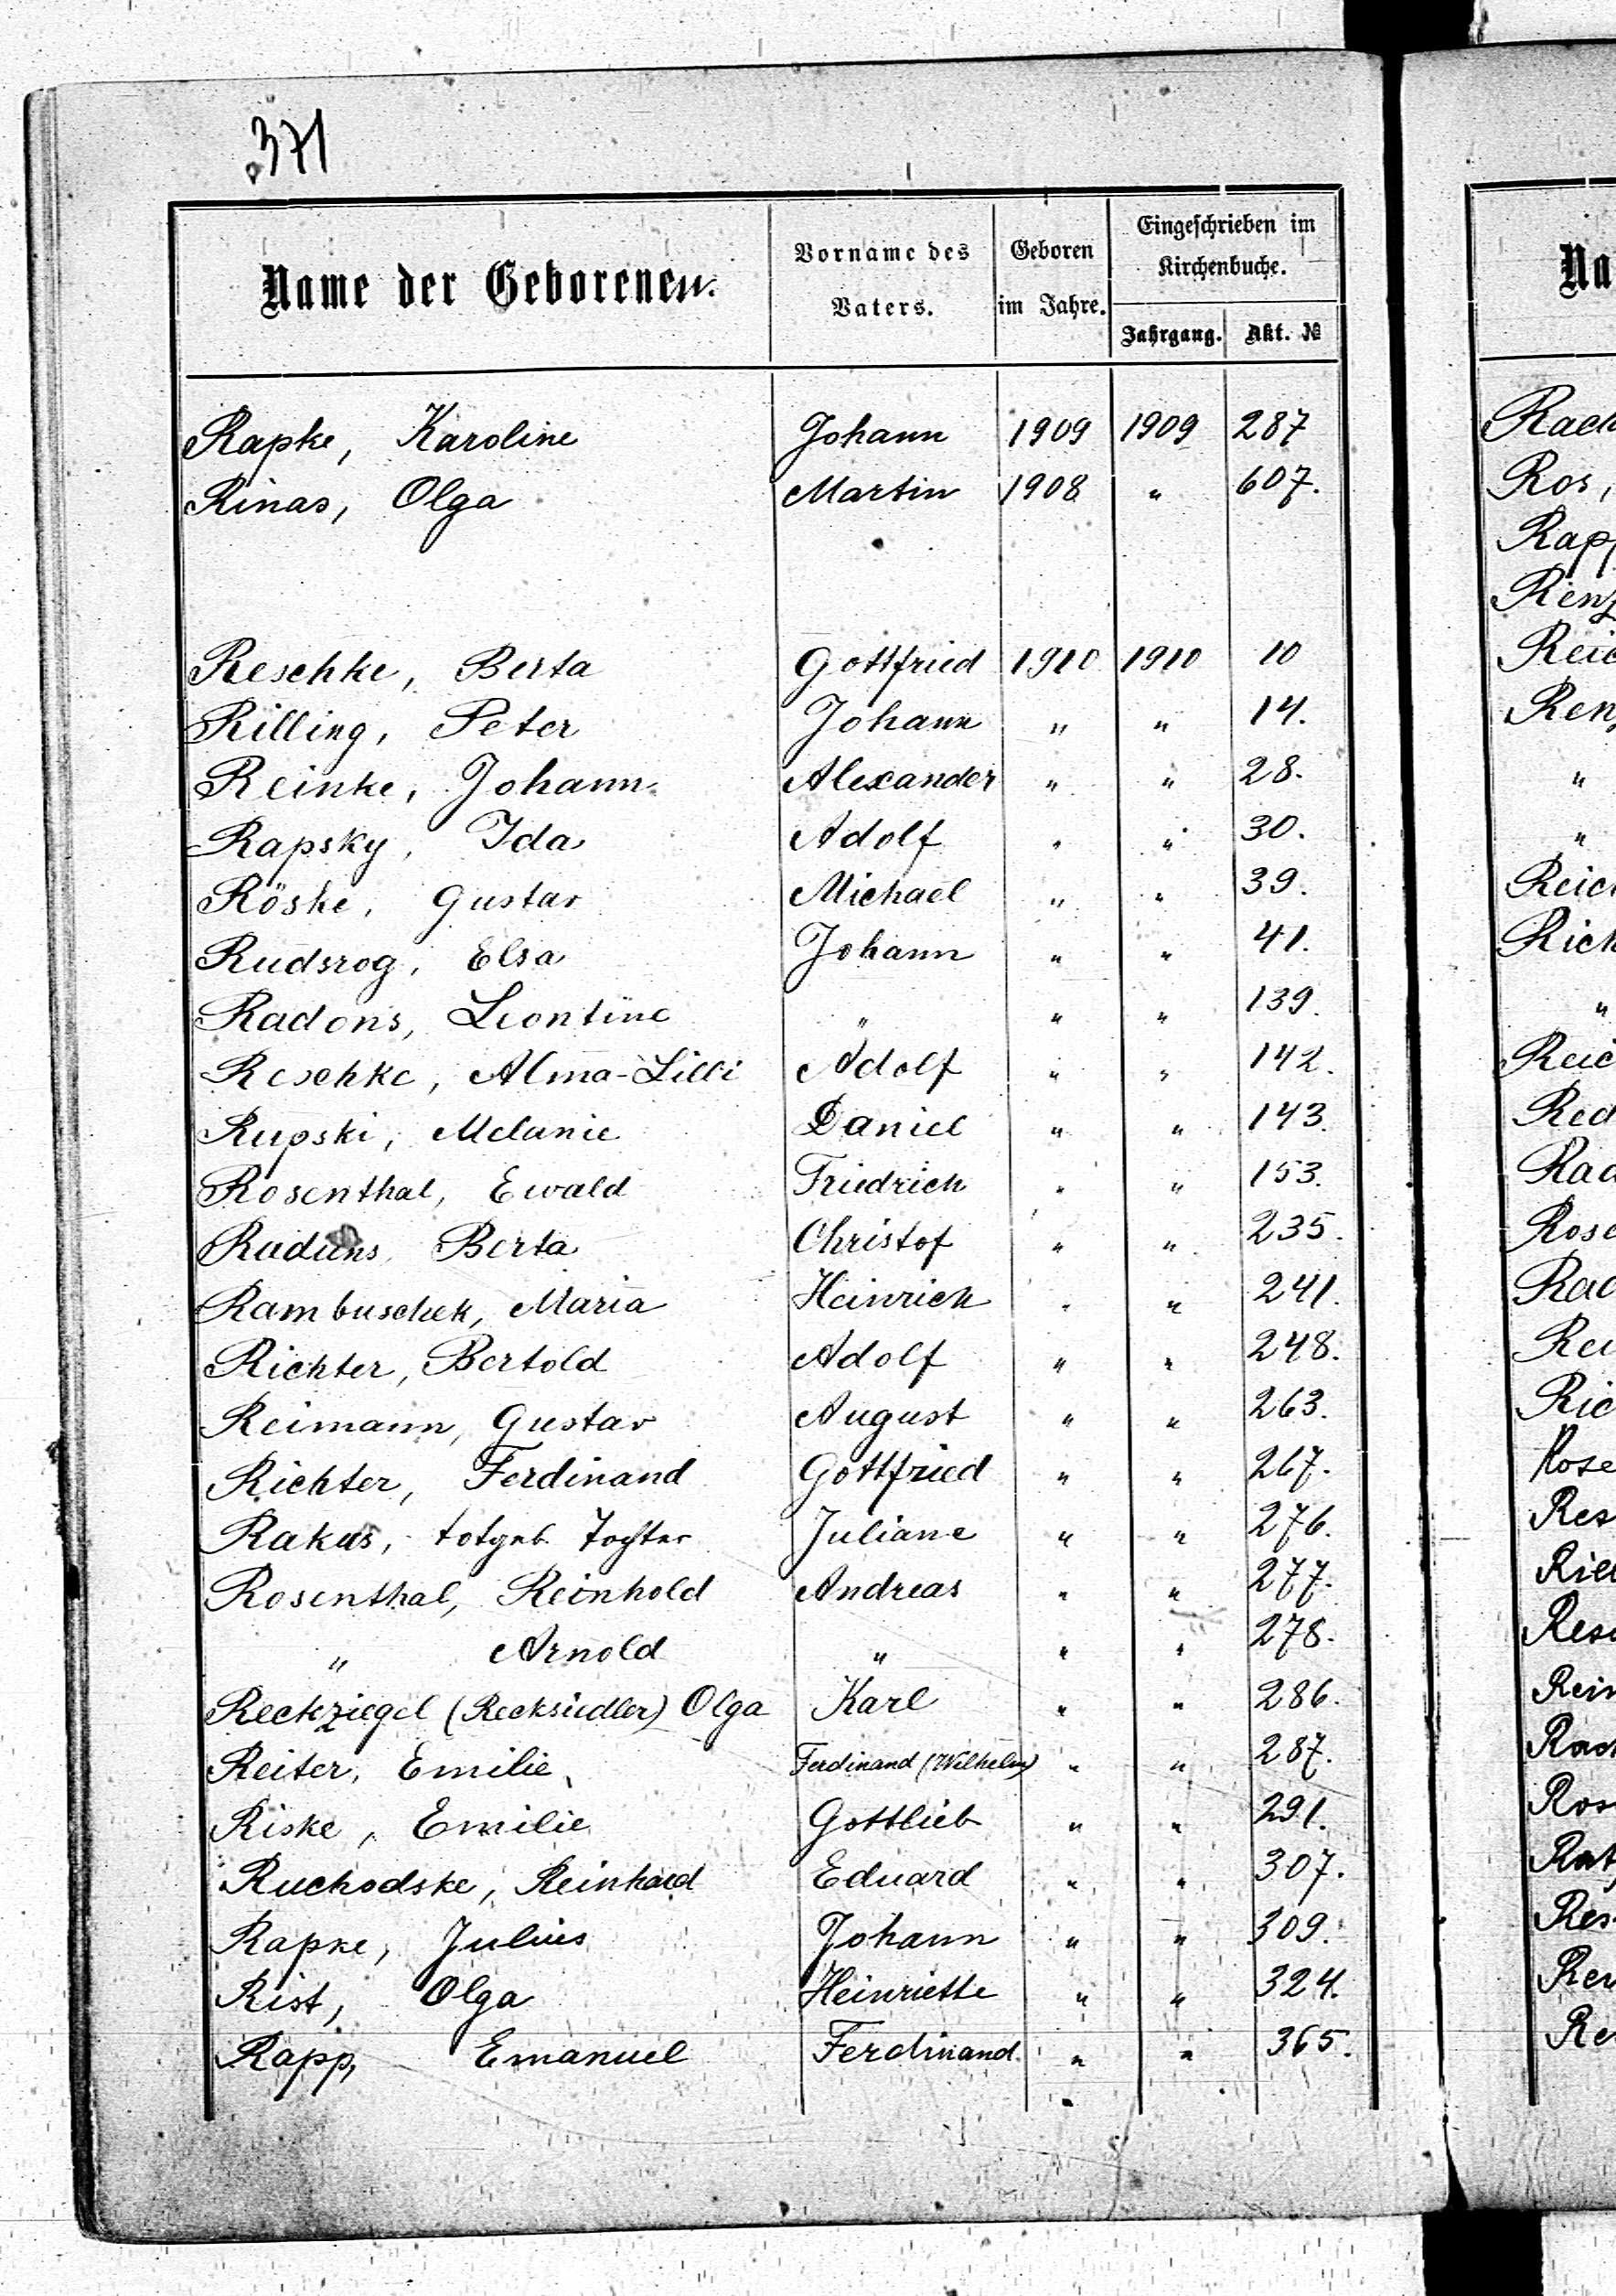 371
Name der Geborenen. Vorname des Vaters. Geboren im Jahre. Eingeschrieben im Kirchenbuche.
Jahrgang. Akt. №
Rapke, Karoline Johann 1909 1909 287
Rinas, Olga Martin 1908 " 607.
Reschke, Berta Gottfried 1910 1910 10
Rilling, Peter Johann " " 14.
Reinke, Johann Alexander " " 28.
Rapsky, Ida Adolf " " 30.
Röske, Gustav Michael " " 39.
Rudsrog, Elsa Johann " " 41.
Radons, Leontine " " " 139.
Reschke, Alma-Lilli Adolf " " 142.
Rupski, Melanie Daniel " " 143.
Rosenthal, Ewald Friedrich " " 153.
Raduns, Berta Christof " " 235.
Rambuschek, Maria Heinrich " " 241.
Richter, Bertold Adolf " " 248.
Reimann, Gustav August " " 263.
Richter, Ferdinand Gottfried " " 267.
Rakus, totgeb. Tochter Juliane " " 276.
Rosenthal, Reinhold Andreas " " 277.
" Arnold " " " 278.
Reckziegel (Recksiedler) Olga Karl " " 286.
Reiter, Emilie Ferdinand (Wilhelm) " " 287.
Riske, Emilie Gottlieb " " 291.
Ruchodske, Reinhard Eduard " " 307.
Rapke, Julius Johann " " 309.
Rist, Olga Heinriette " " 324.
Rapp, Emanuel Ferdinand " " 365.
Na
Rach
Ros,
Rapp
Renz
Reic
Renz
"
"
Reich
Rich
"
Reic
Red
Rad
Rose
Rad
Rei
Ric
Rose
Res
Resc
Rein
Ros
Res